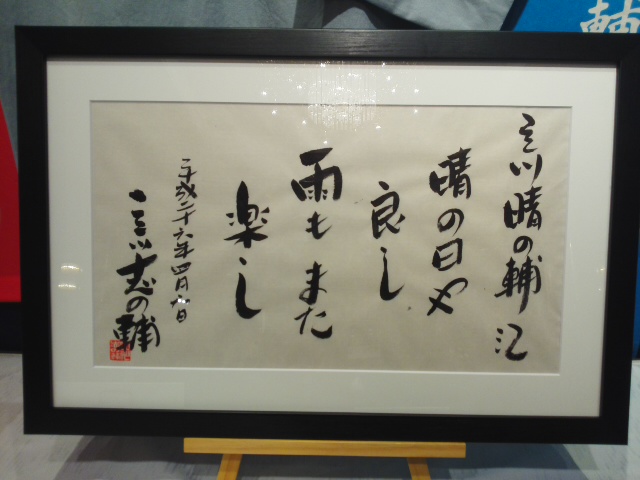 立川晴の輔江
晴の日や
良し
雨もまた
楽し
平成二十六年四月九日
立川志の輔
輔